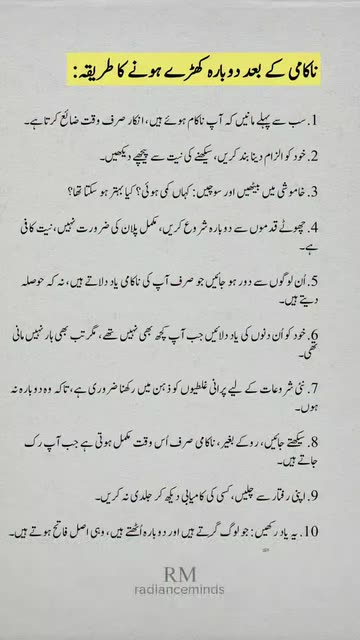 ناکامی کے بعد دوبارہ کھڑے ہونے کا طریقہ:
1. سب سے پہلے مانیں کہ آپ ناکام ہوئے ہیں، انکار صرف وقت ضائع کرتا ہے۔
2. خود کو الزام دینا بند کریں، سیکھنے کی نیت سے پیچھے دیکھیں۔
3. خاموشی میں بیٹھیں اور سوچیں: کہاں کمی ہوئی؟ کیا بہتر ہو سکتا تھا؟
4. چھوٹے قدموں سے دوبارہ شروع کریں، مکمل پلان کی ضرورت نہیں، نیت کافی
ہے۔
5. اُن لوگوں سے دور ہو جائیں جو صرف آپ کی ناکامی یاد دلاتے ہیں، نہ کہ حوصلہ
دیتے ہیں۔
6. خود کو اُن دنوں کی یاد دلائیں جب آپ کچھ بھی نہیں تھے، مگر تب بھی ہار نہیں مانی
تھی۔
7. نئی شروعات کے لیے پرانی غلطیوں کو ذہن میں رکھنا ضروری ہے، تاکہ وہ دوبارہ نہ
ہوں۔
8. سیکھتے جائیں، روکے بغیر، ناکامی صرف اُس وقت مکمل ہوتی ہے جب آپ رک
جاتے ہیں۔
9. اپنی رفتار سے چلیں، کسی کی کامیابی دیکھ کر جلدی نہ کریں۔
10. یہ یاد رکھیں: جو لوگ گرتے ہیں اور دوبارہ اُٹھتے ہیں، وہی اصل فاتح ہوتے ہیں۔
RM
radianceminds